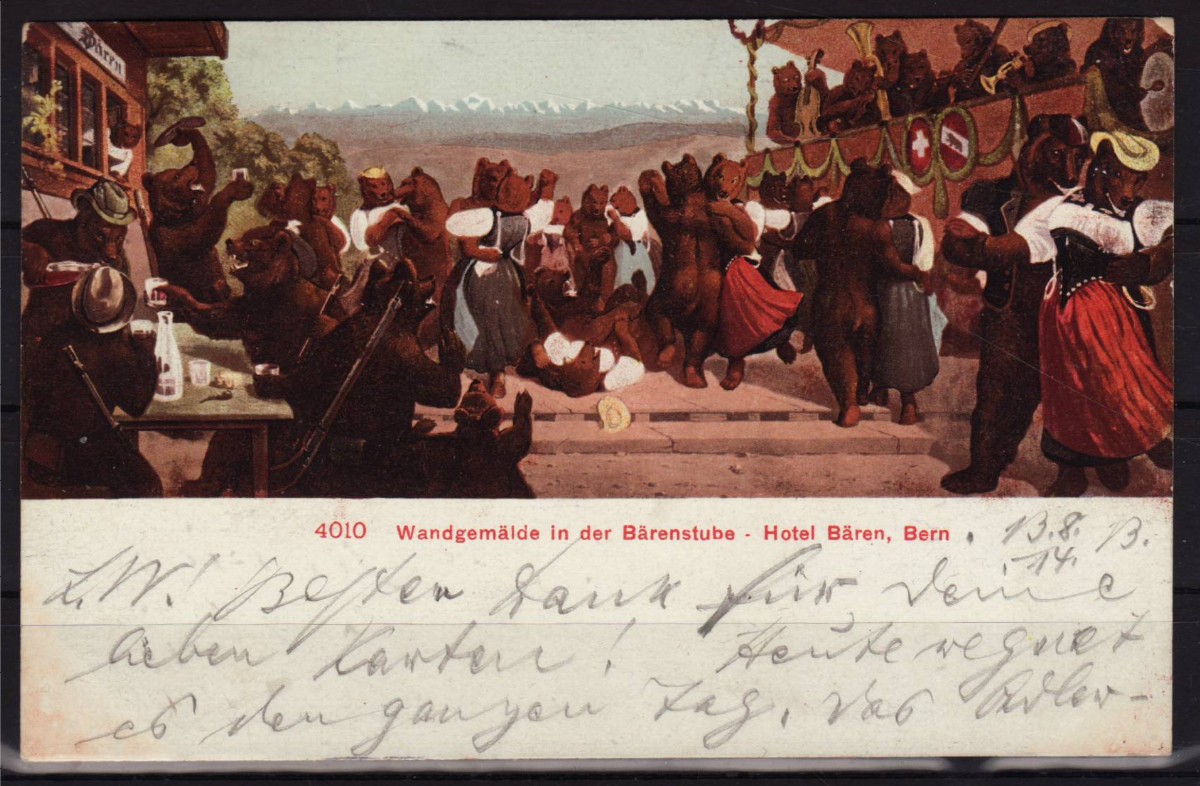 Bären
4010 Wandgemälde in der Bärenstube - Hotel Bären, Bern
B. 13.8.14.
L.W! Besten Dank für Deine
lieben Karten! Heute regnet
es den ganzen Tag. Das Adler-